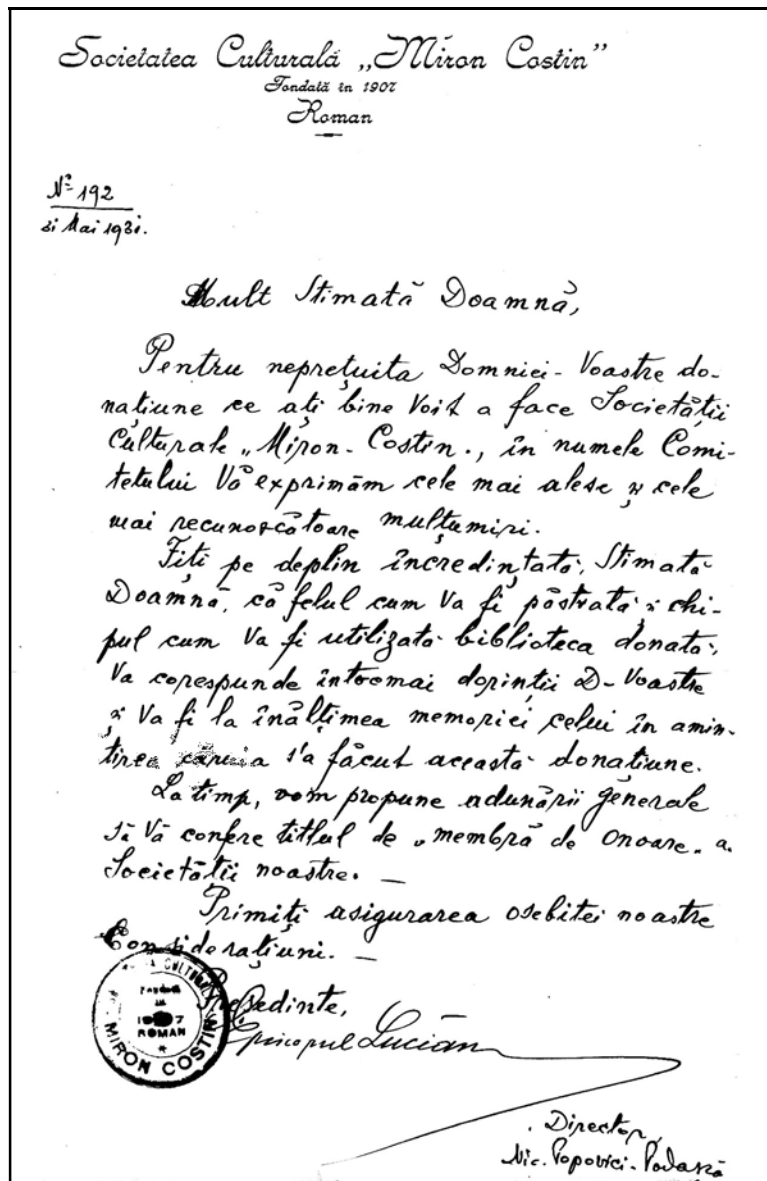 Societatea Culturală „Miron Costin”
Fondată în 1907
Roman
Nº 192
31 Mai 1931.
Mult Stimată Doamnă,
Pentru neprețuita Domniei-Voastre do-
națiune ce ați bine Voit a face Societății
Culturale „Miron-Costin„, în numele Comi-
tetului Vă exprimăm cele mai alese și cele
mai recunoscătoare mulțumiri.
Fiți pe deplin încredințată, Stimată
Doamnă, că felul cum Va fi păstrată și chi-
pul cum Va fi utilizată biblioteca donată,
Va corespunde întocmai dorinții D-Voastre
și Va fi la înălțimea memoriei celui în amin-
tirea căruia s'a făcut această donațiune.
La timp, vom propune adunării generale
să Vă confere titlul de „membră de onoare„ a
Societății noastre. —
Primiți asigurarea osebitei noastre
Considerațiuni. —
Președinte,
Episcopul Lucian
CULTURALA
FONDATĂ
IN
1907
ROMAN
MIRON COSTIN
Director,
Nic. Popovici-Podașcă